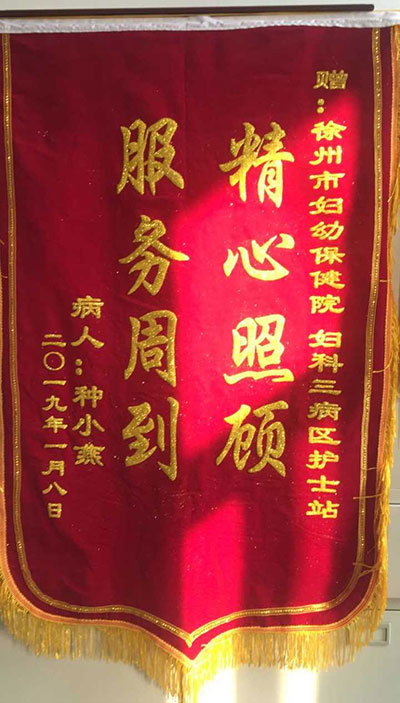 赠：徐州市妇幼保健院 妇科三病区护士站
精心照顾
服务周到
病人：种小燕
二〇一九年一月八日